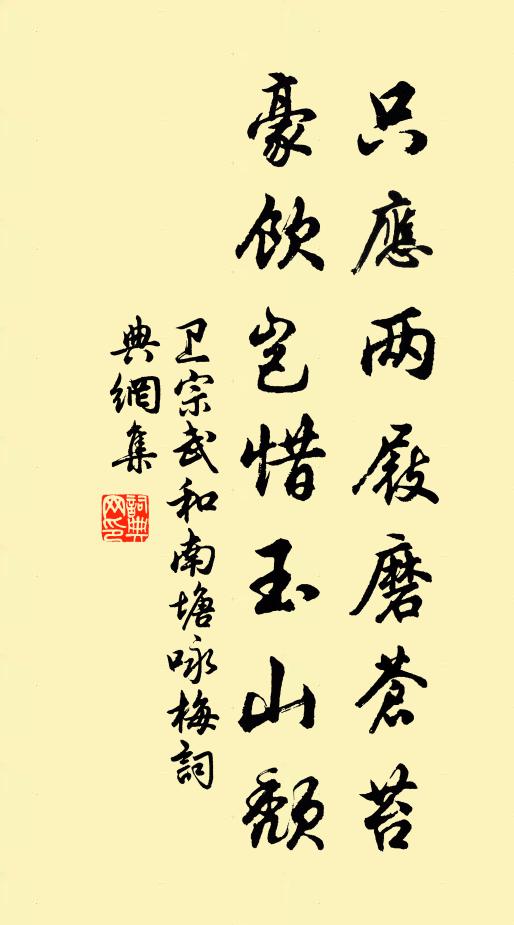 只應两屐磨蒼苔
豪飲岂惜玉山頽
卫宗武和南塘咏梅詞
典網集
詞典
网印